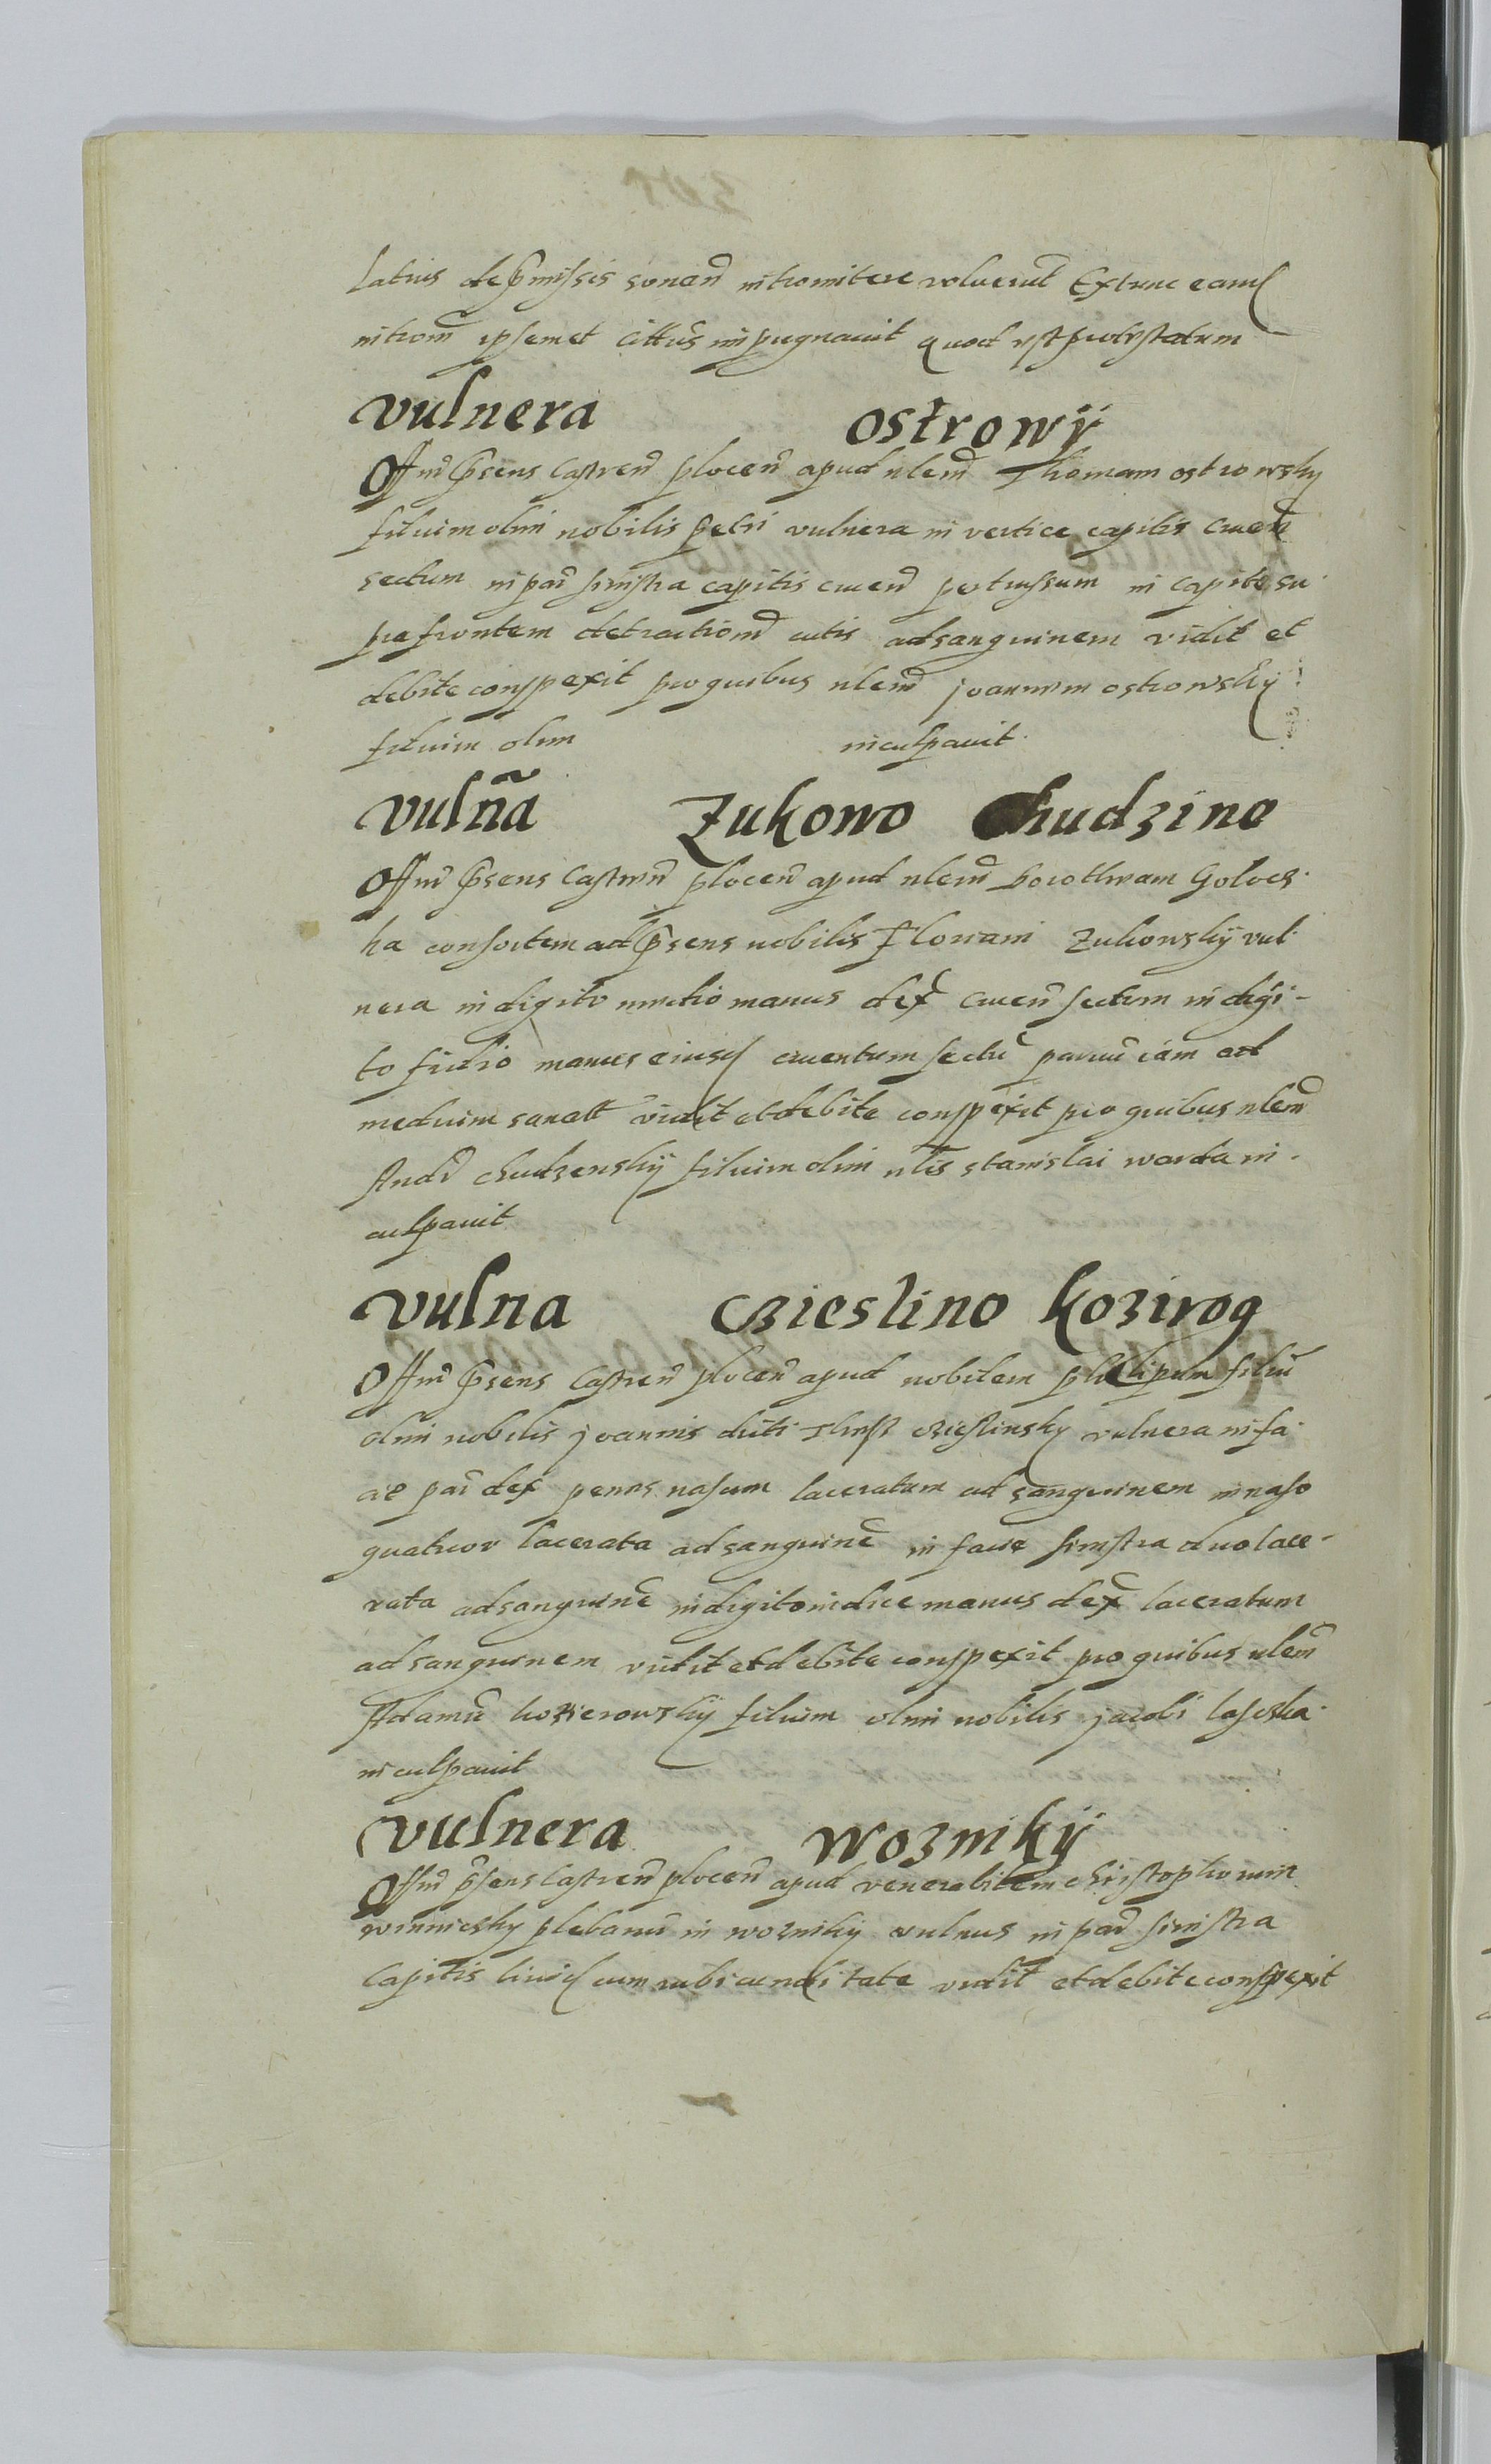 latius de p̄missis sonan̄ intromitere voluerūt Extunc eand
introm̄ ipsemet Cittūs impugnavit quod est protestatum
vulnera ostrowÿ
Offm̄ p̄sens Castren̄ plocen̄ apud nlem̄ Thomam ostrowsky
filium olim nobilis petri vulnera in vertice capitis cruen̄
sectum in par̄ sinistra capitis cruen̄ pertussum in capite su
pra frontem detractionem̄ cutis ad sanguinem vidit et
debite conspexit pro quibus nlem̄ joannem ostrowskÿ
filium olim inculpavit
vulñã Zukowo Chudzino
Offm̄ p̄sens Castren̄ plocen̄ apud nlem̄ Dorotheam Golocz
ka consortem ad p̄sens nobilis Floriani Zukowskÿ vul
nera in digito medio manus dex̄ cruen̄ sectum in digi-
to manus eiusd cruentum sectū parvū iam ad
medium sanatt vidit et debite conspexit pro quibus nlem̄
Andr̄ chudzenskÿ filium olim nlis stanislai warda in
culpavit
vulna Czieslino kozirog
Offm̄ p̄sens Castren̄ plocen̄ apud nobilem philipum filiū
olim nobilis joannis dicti czieslinsky vulnera in fa
cie par̄ dex penes nasum laceratum ad sanguinem in naso
quatuor lacerata ad sanguinē in facie sinistra duo lace-
rata ad sanguinē in digito indice manus dex̄ laceratum
ad sanguinem vidit et debite conspexit pro quibus nlem̄
Adamū kozierowskÿ filium olim nobilis jacobi
inculpavit
vulnera woznikÿ
Offm̄ p̄sens Castren̄ plocen̄ apud venerabilem christophorum
winnicsky plebanū in woznikÿ vulnus in par̄ sinistra
Capitis livid cum rubicunditate vidit et debite conspexit